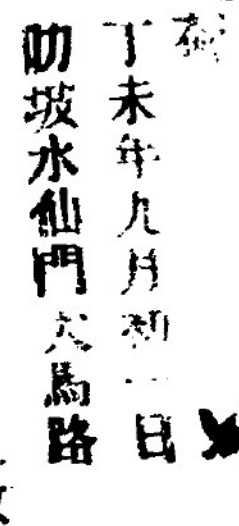 丁未年九月初一日
叻坡水仙門大馬路